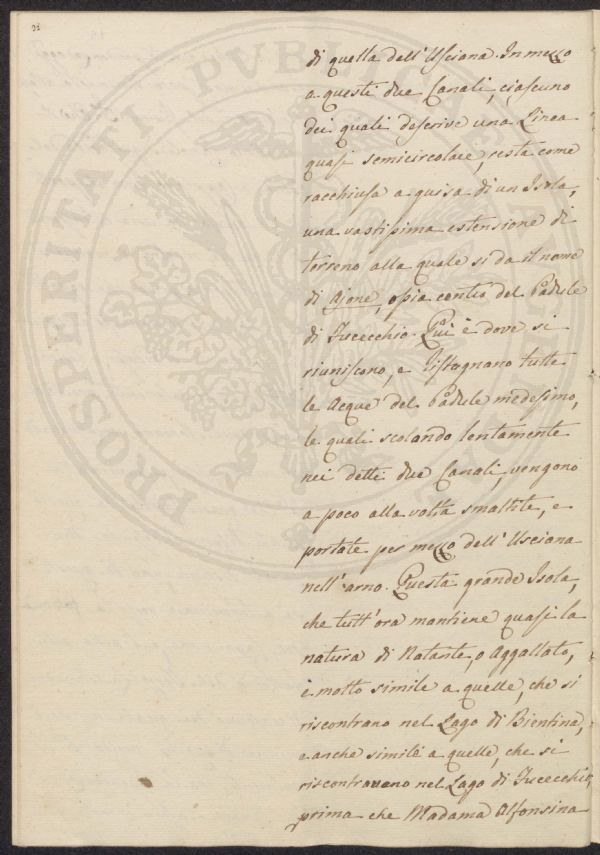 21
di quella dell'Usciana. In mezzo
a questi due Canali, ciascuno
dei quali descrive una Linea
quasi semicircolare, resta come
racchiusa a guisa di un Isola,
una vastissima estensione di
terreno alla quale si da il nome
di Ajone, ossia centro del Padule
di Fucecchio. Qui è dove si
riuniscono, e ristagnano tutte
le Acque del Padule medesimo,
le quali scolando lentamente
nei detti due Canali, vengono
a poco alla volta smaltite, e
portate per mezzo dell'Usciana
nell'arno. Questa grande Isola,
che tutt'ora mantiene quasi la
natura di Natante, o Aggallato,
è molto simile a quelle, che si
riscontrano nel Lago di Bientina,
e anche simile a quelle, che si
riscontravano nel Lago di Fucecchio,
prima che Madama Alfonsina
PROSPERITATI PVBLICAE